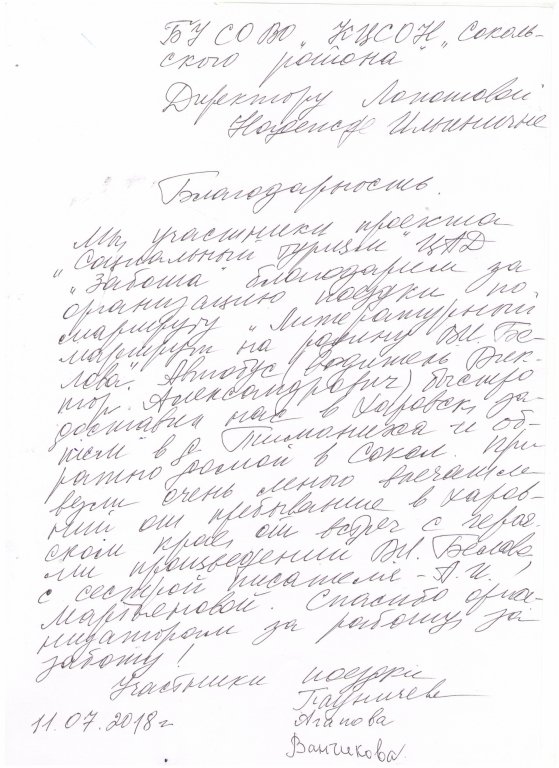 БУ СО ВО „КЦСОН „Соколь-
ского района"
Директору Лопотовой
Надежде Ильиничне
Благодарность.
Мы участники проекта
„Социальный туризм" ЦАД
„Забота" благодарим за
организацию поездки по
маршруту „Литературный
маршрут на родину В.И. Бе-
лова". Автобус (водитель Вик-
тор Александрович) быстро
доставил нас в Харовск, за-
тем в д. Тимониха и об-
ратно домой в Сокол. При
везли очень много впечатле
ний от пребывание в Харов-
ском крае, от встреч с героя-
ми произведений В.И. Белова
с сестрой писателя - А.И.
Мартьяновой. Спасибо орга-
низаторам за работу, за
заботу!
Участники поездки
11.07.2018г
Агапова
Ванчикова